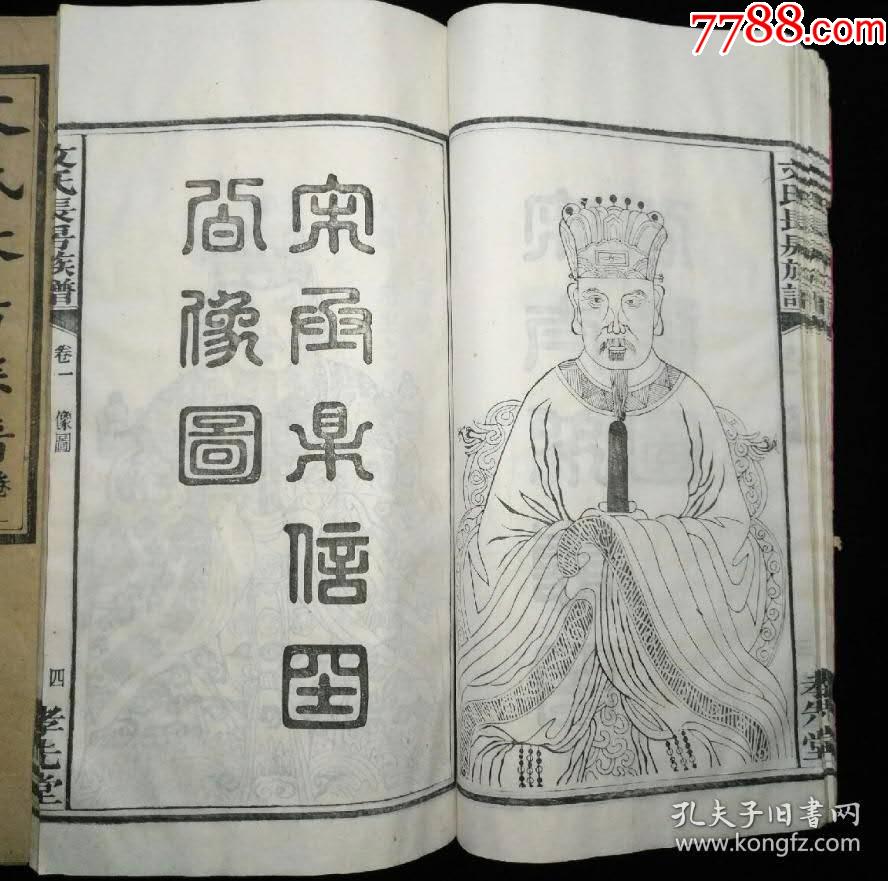 7788.com
文氏長房族譜
孝先堂
宋丞相信國
公像圖
文氏長房族譜
卷一 像圖
四
孝先堂
孔夫子旧书网
@kongfz.com